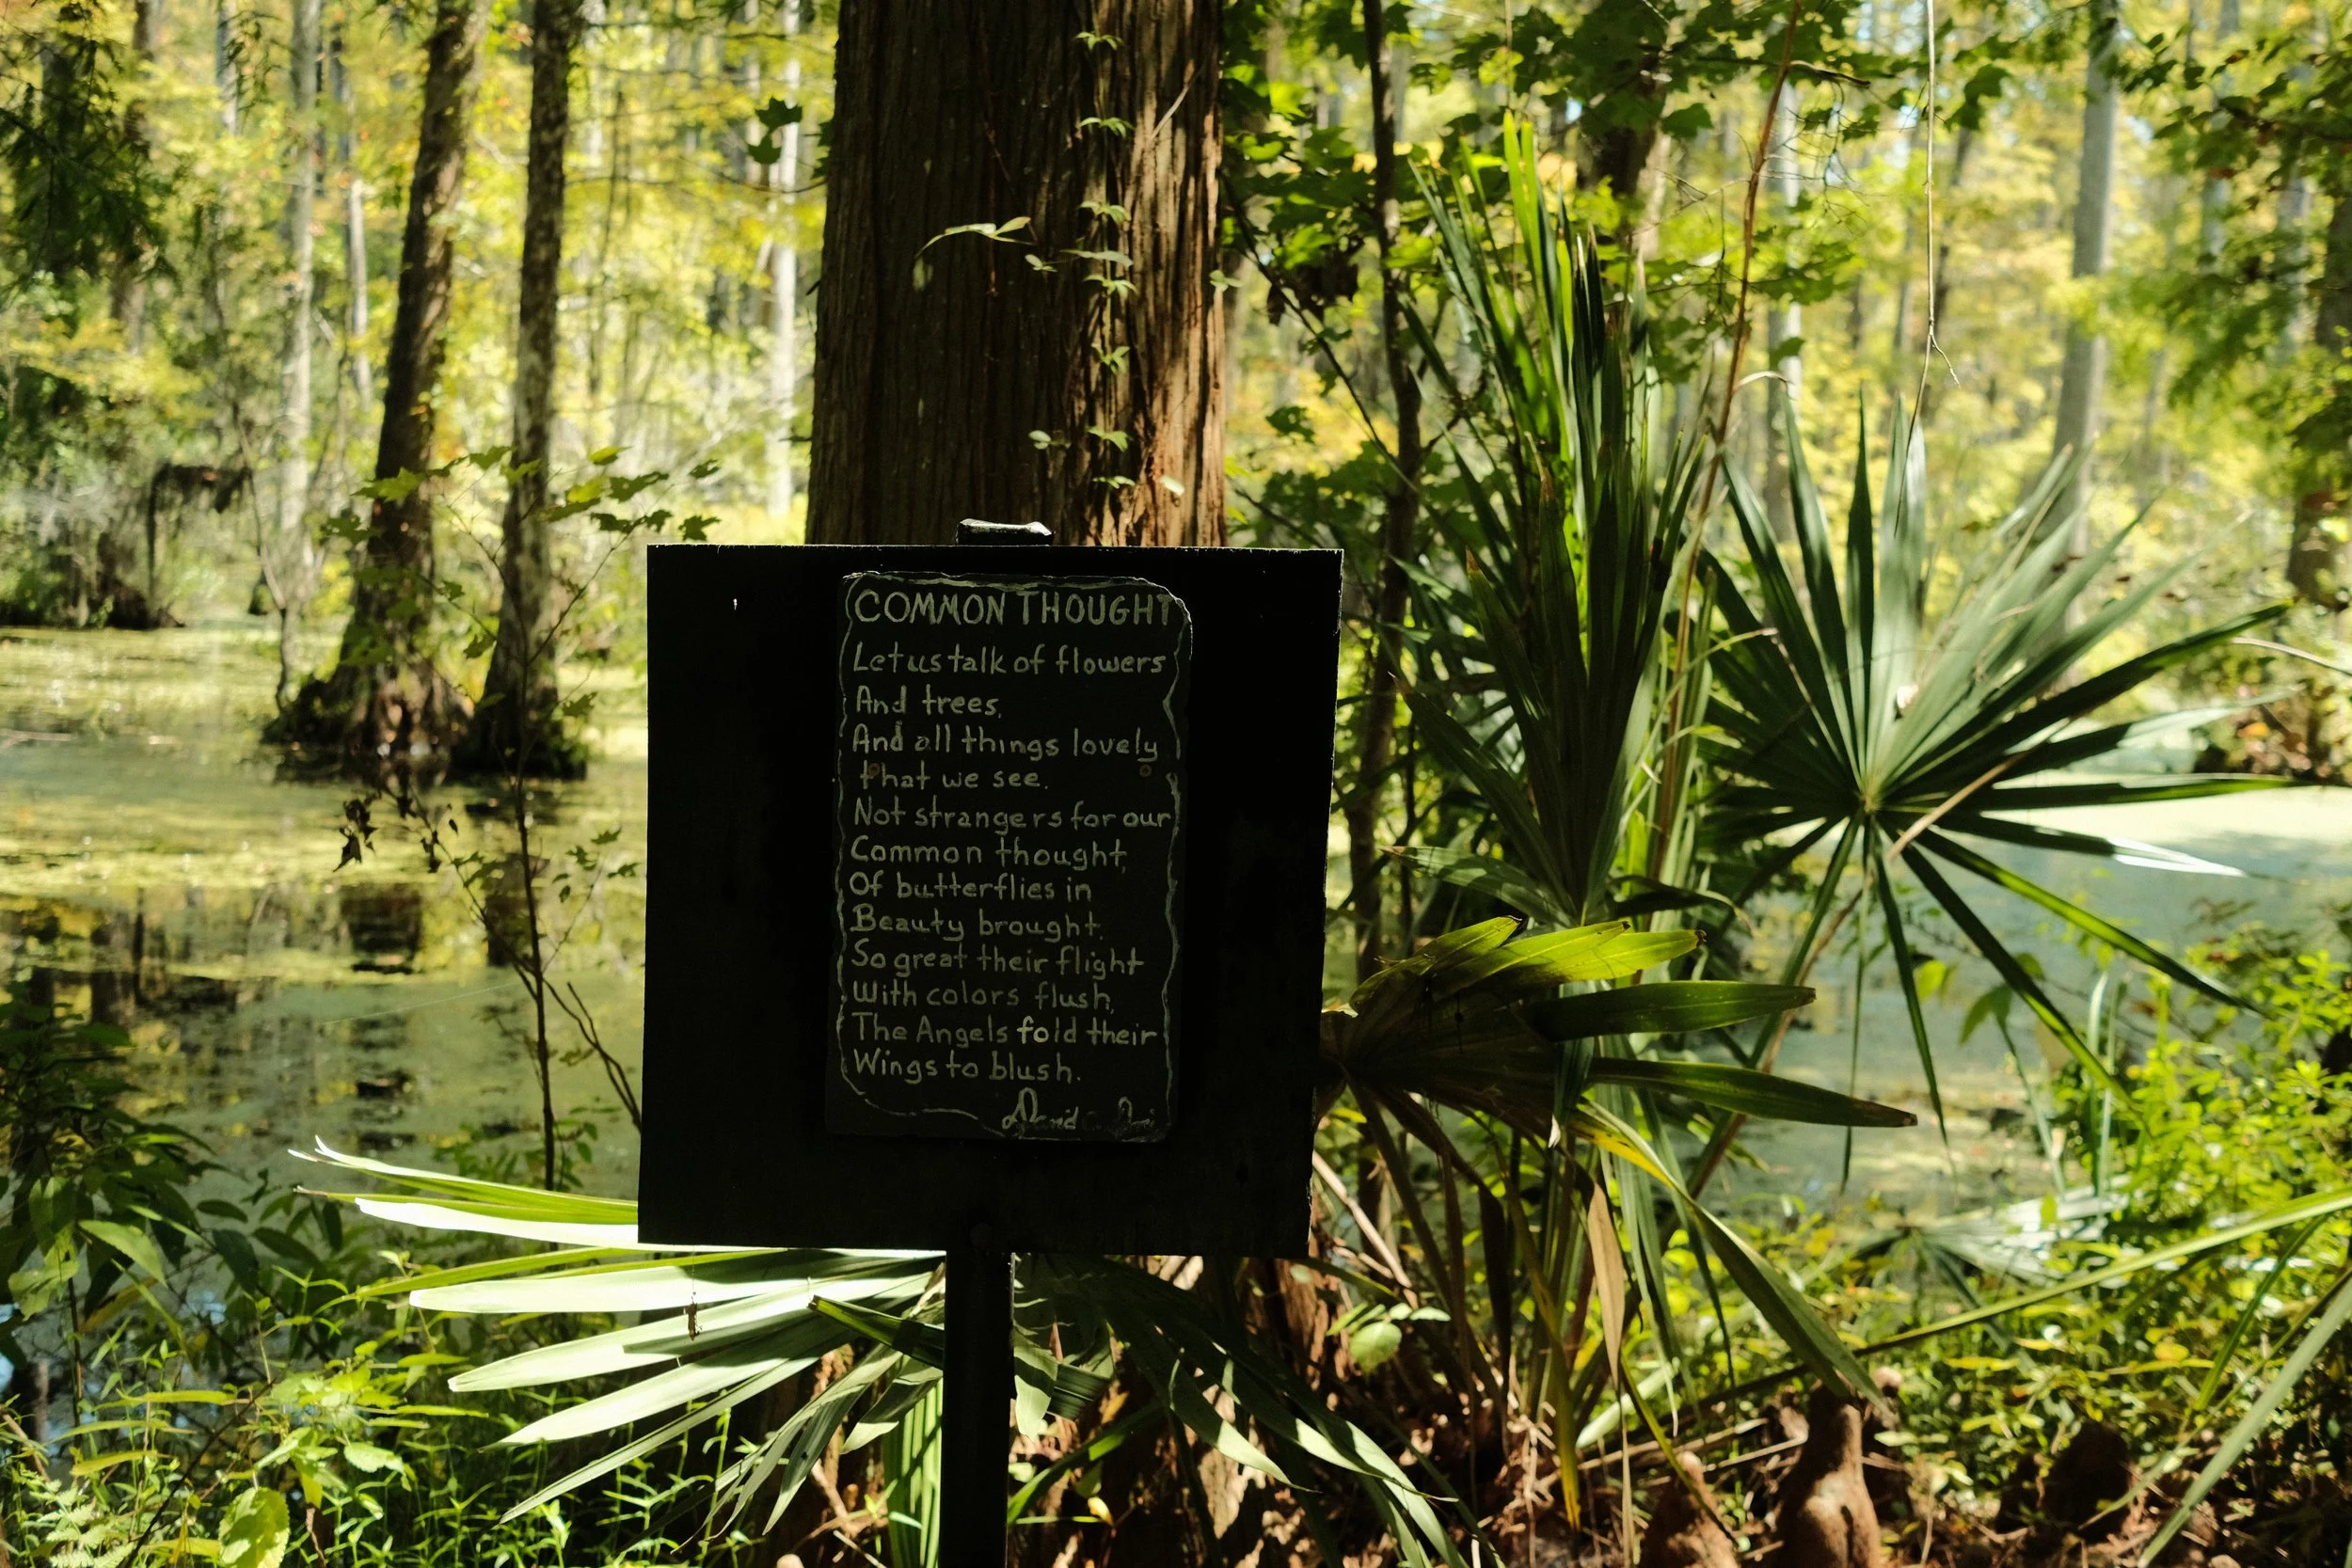 COMMON THOUGHT
Let us talk of flowers
And trees,
And all things lovely
that we see.
Not strangers for our
Common thought,
Of butterflies in
Beauty brought.
So great their flight
With colors flush,
The Angels fold their
Wings to blush.
David